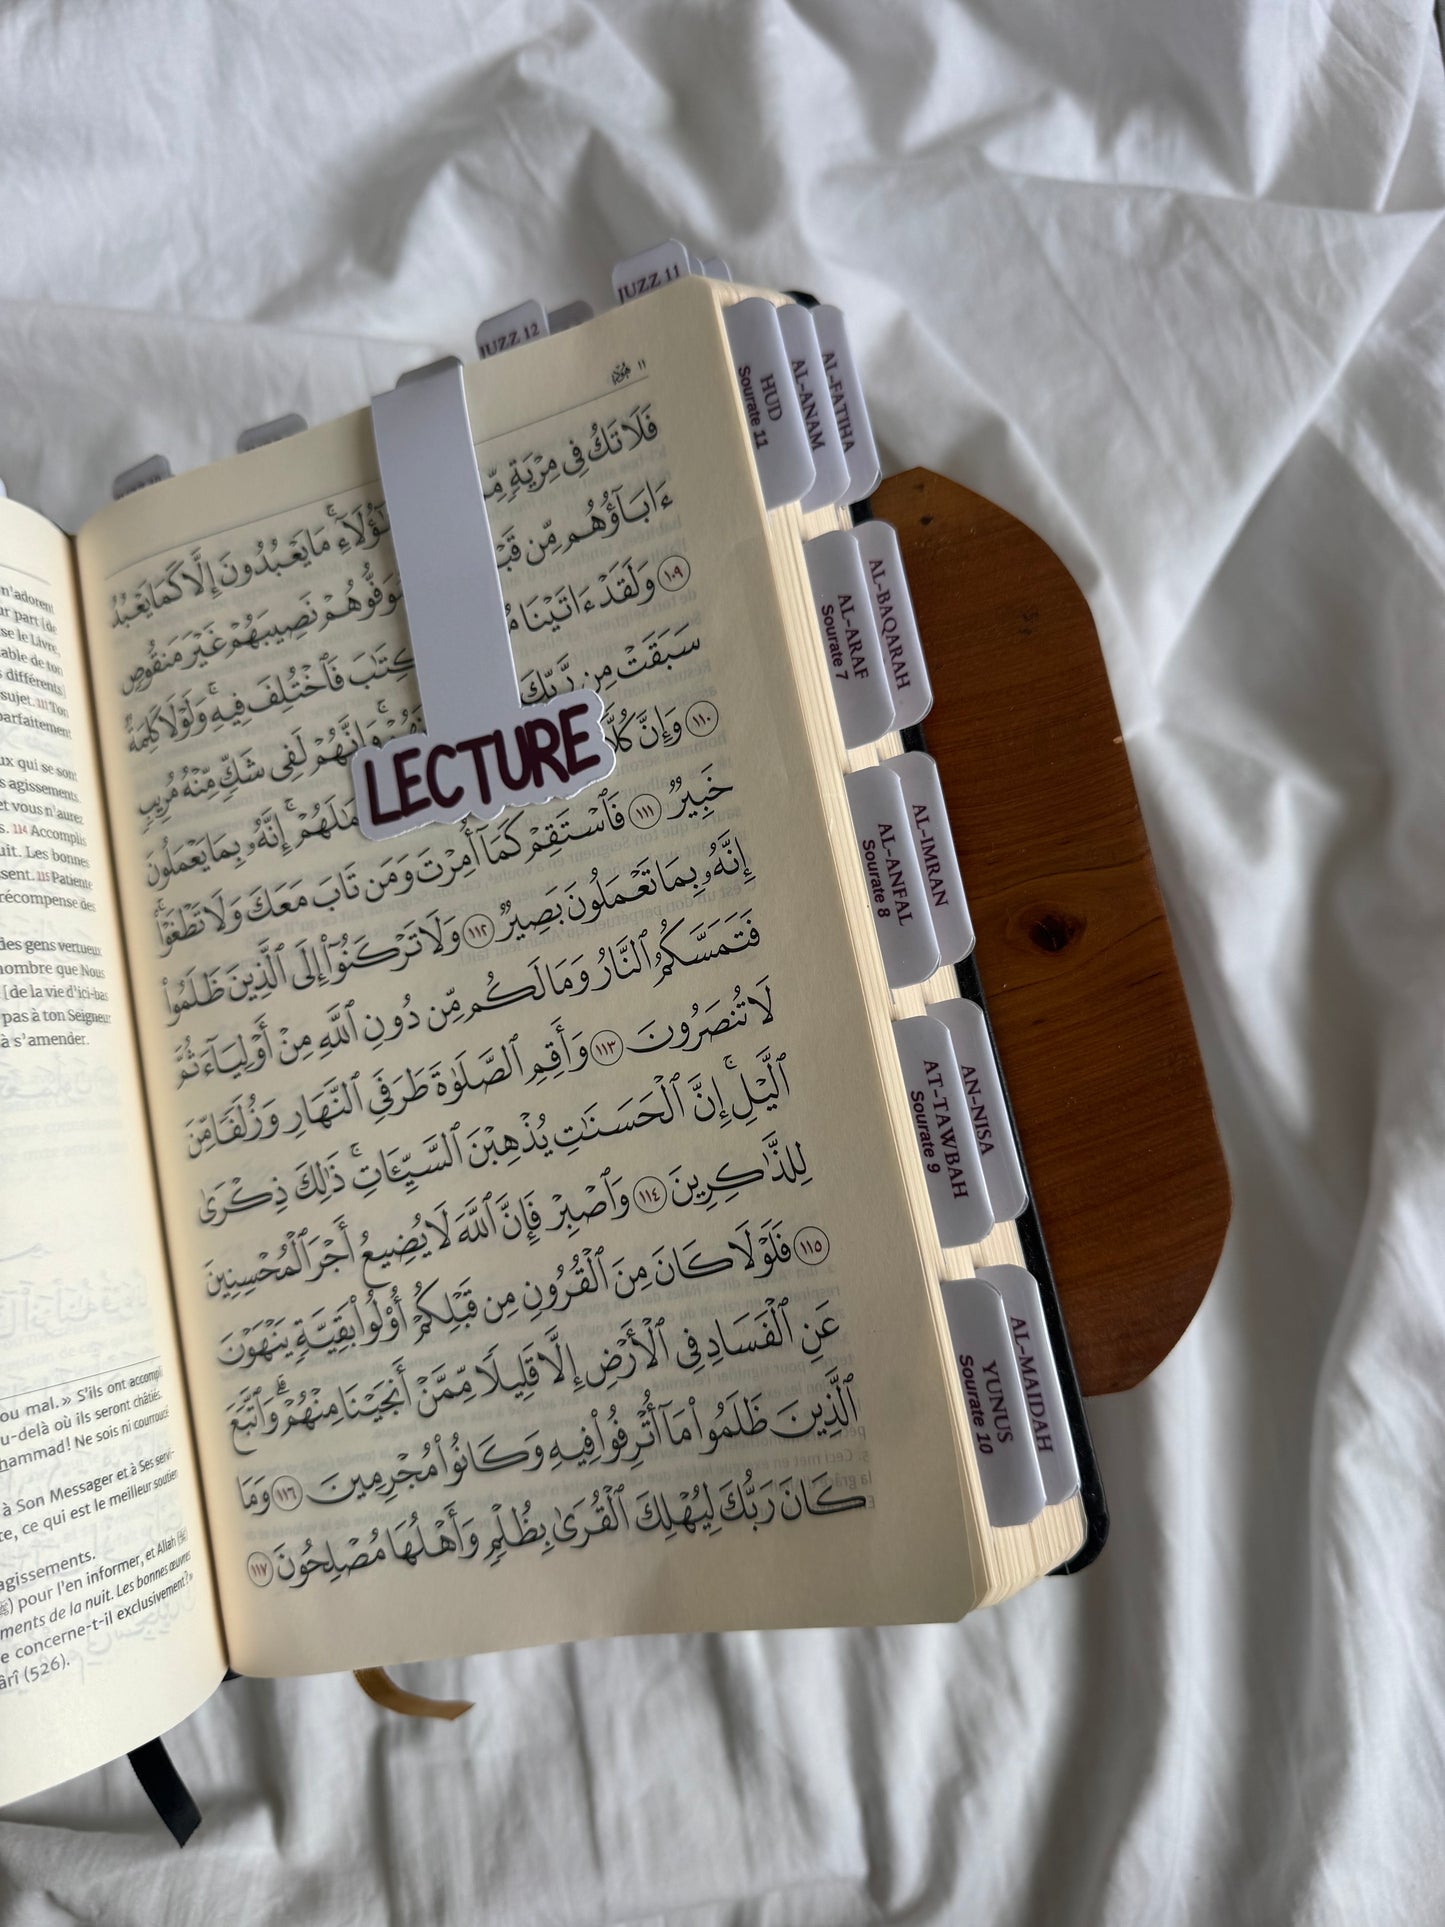 JUZZ 11
JUZZ 12
١١ هُود
فَلَا تَكُ فِى مِرْيَةٍ مِّ ؤُلَآءِ ۚ مَا يَعْبُدُونَ إِلَّا كَمَا يَعْبُدُ
ءَابَآؤُهُم مِّن قَبْ وَفُّوهُمْ نَصِيبَهُمْ غَيْرَ مَنقُوصٍ
١٠٩ وَلَقَدْ ءَاتَيْنَا مُ كِتَٰبَ فَٱخْتُلِفَ فِيهِ ۚ وَلَوْلَا كَلِمَةٌ
سَبَقَتْ مِن رَّبِّكَ وَإِنَّهُمْ لَفِى شَكٍّ مِّنْهُ مُرِيبٍ
١١٠ وَإِنَّ كُلًّا مَٰلَهُمْ ۚ إِنَّهُۥ بِمَا يَعْمَلُونَ
خَبِيرٌ ١١١ فَٱسْتَقِمْ كَمَآ أُمِرْتَ وَمَن تَابَ مَعَكَ وَلَا تَطْغَوْا۟ ۚ
إِنَّهُۥ بِمَا تَعْمَلُونَ بَصِيرٌ ١١٢ وَلَا تَرْكَنُوٓا۟ إِلَى ٱلَّذِينَ ظَلَمُوا۟
فَتَمَسَّكُمُ ٱلنَّارُ وَمَا لَكُم مِّن دُونِ ٱللَّهِ مِنْ أَوْلِيَآءَ ثُمَّ
لَا تُنصَرُونَ ١١٣ وَأَقِمِ ٱلصَّلَوٰةَ طَرَفَىِ ٱلنَّهَارِ وَزُلَفًا مِّنَ
ٱلَّيْلِ ۚ إِنَّ ٱلْحَسَنَٰتِ يُذْهِبْنَ ٱلسَّيِّـَٔاتِ ۚ ذَٰلِكَ ذِكْرَىٰ
لِلذَّٰكِرِينَ ١١٤ وَٱصْبِرْ فَإِنَّ ٱللَّهَ لَا يُضِيعُ أَجْرَ ٱلْمُحْسِنِينَ
١١٥ فَلَوْلَا كَانَ مِنَ ٱلْقُرُونِ مِن قَبْلِكُمْ أُو۟لُوا۟ بَقِيَّةٍ يَنْهَوْنَ
عَنِ ٱلْفَسَادِ فِى ٱلْأَرْضِ إِلَّا قَلِيلًا مِّمَّنْ أَنجَيْنَا مِنْهُمْ ۗ وَٱتَّبَعَ
ٱلَّذِينَ ظَلَمُوا۟ مَآ أُتْرِفُوا۟ فِيهِ وَكَانُوا۟ مُجْرِمِينَ ١١٦ وَمَا
كَانَ رَبُّكَ لِيُهْلِكَ ٱلْقُرَىٰ بِظُلْمٍ وَأَهْلُهَا مُصْلِحُونَ ١١٧
LECTURE
HUD
Sourate 11
AL-ANAM
AL-FATIHA
AL-ARAF
Sourate 7
AL-BAQARAH
AL-ANFAL
Sourate 8
AL-IMRAN
AT-TAWBAH
Sourate 9
AN-NISA
YUNUS
Sourate 10
AL-MAIDAH
n'adorent
ur part [de
se le Livre,
table de ton
s différents]
sujet. 111 Ton
parfaitement
ux qui se sont
s agissements.
et vous n'aurez
s. 114 Accomplis
uit. Les bonnes
ssent. 115 Patiente
récompense des
des gens vertueux
nombre que Nous
[de la vie d'ici-bas
pas à ton Seigneur
à s'amender.
ou mal. » S'ils ont accompli
u-delà où ils seront châtiés.
hammad ! Ne sois ni courroucé
à Son Messager et à Ses servi-
te, ce qui est le meilleur soutien
agissements.
ﷺ) pour l'en informer, et Allah ﷻ
ments de la nuit. Les bonnes œuvres
e concerne-t-il exclusivement ? »
ârî (526).